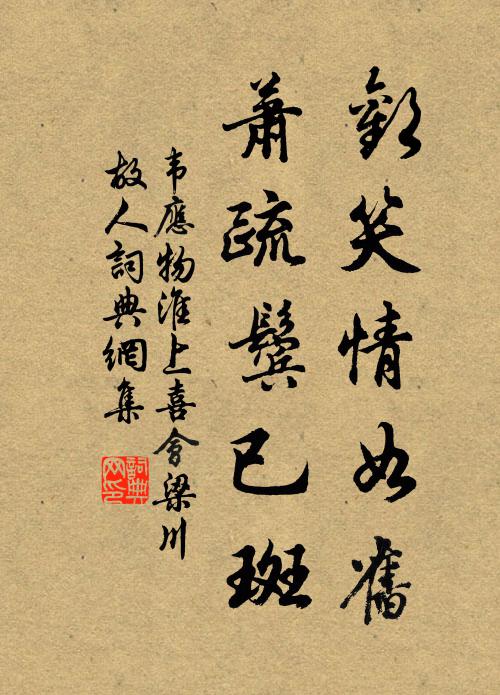 歡笑情如舊
蕭疏鬢已斑
韦應物淮上喜會梁川
故人詞典網集
詞典网印